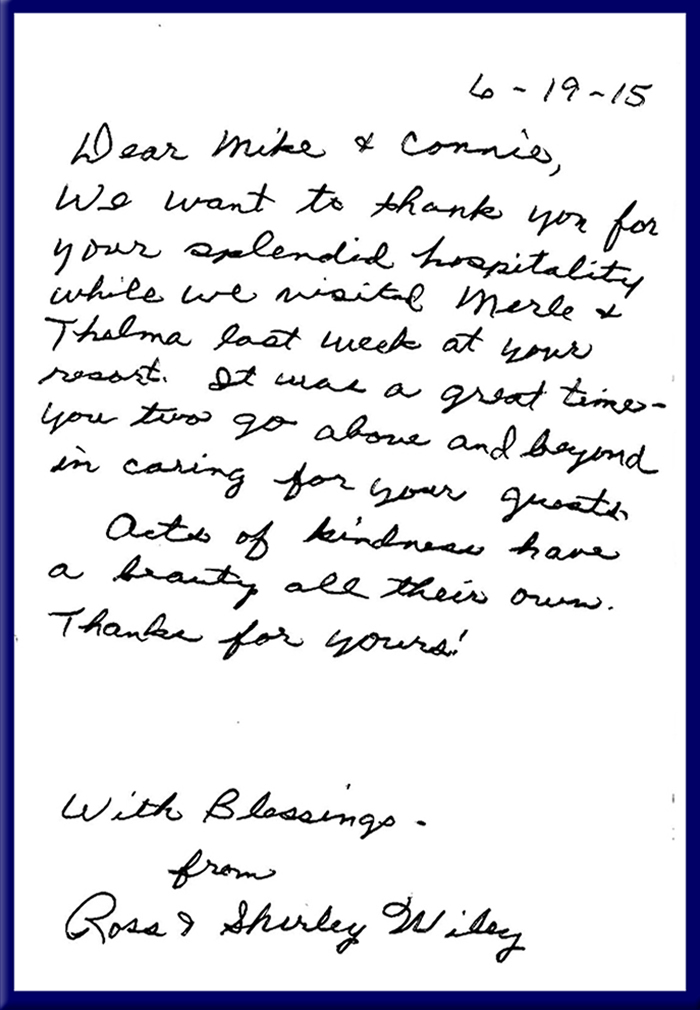 6-19-15
Dear Mike & Connie,
We want to thank you for
your splendid hospitality
while we visited Merle &
Thelma last week at your
resort. It was a great time-
you two go above and beyond
in caring for your guests.
Acts of kindness have
a beauty all their own.
Thanks for yours!
With Blessings -
from
Ross & Shirley Wiley